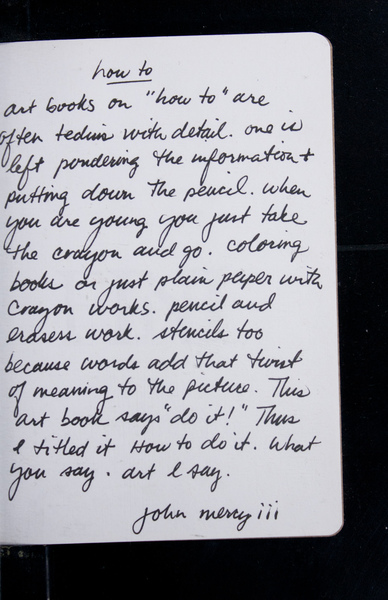 how to
art books on "how to" are
often tedius with detail. one is
left pondering the information +
putting down the pencil. when
you are young you just take
the crayon and go. coloring
books or just plain paper with
crayon works. pencil and
erasers work. stencils too
because words add that twist
of meaning to the picture. This
art book says "do it!" Thus
I titled it How to do it. What
you say. art I say.
john mercy iii